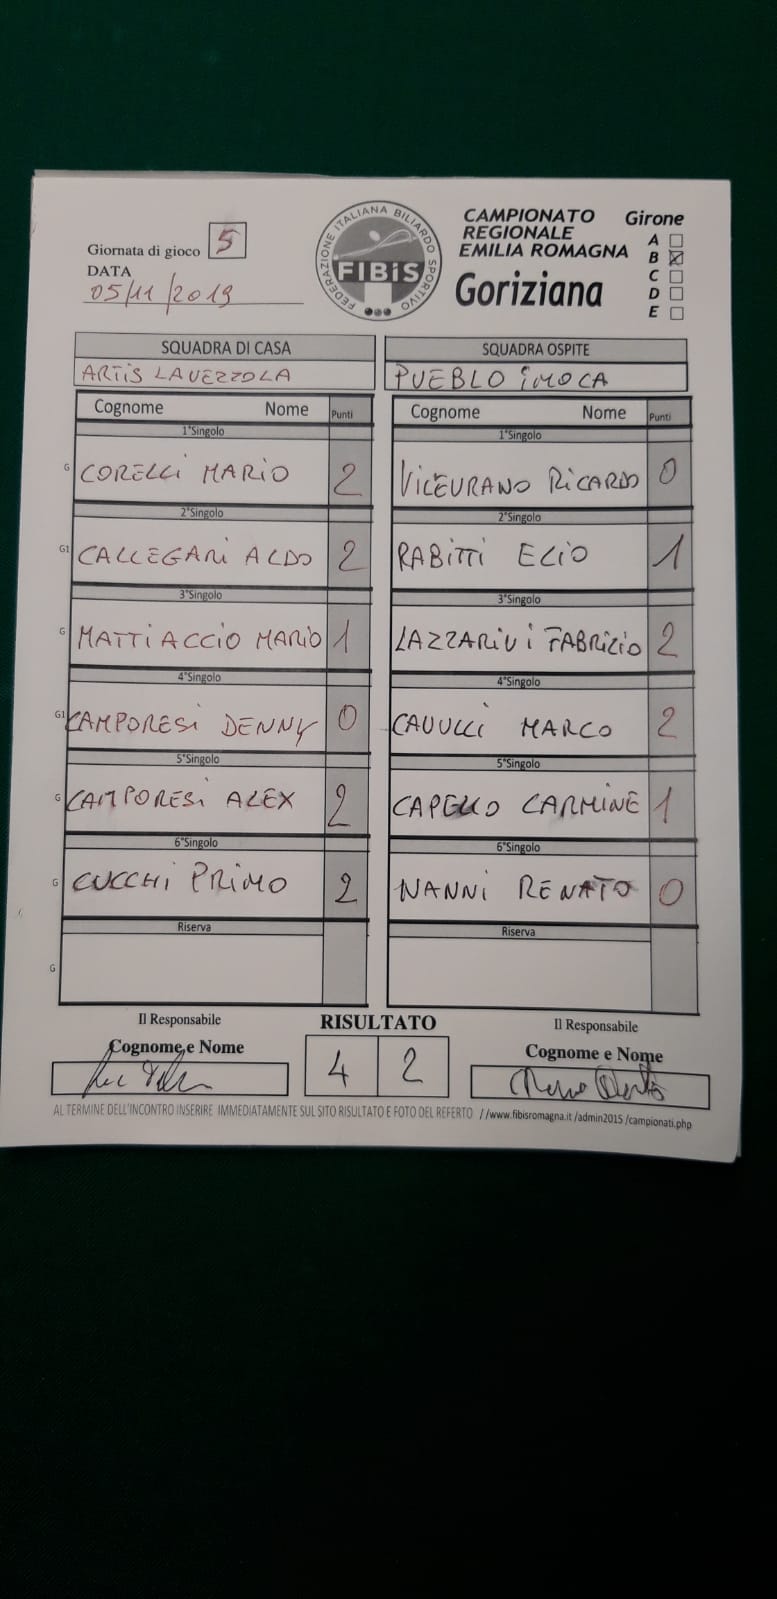 Giornata di gioco 5
DATA
05/11/2019
FEDERAZIONE ITALIANA BILIARDO SPORTIVO
FIBiS
CAMPIONATO
REGIONALE
EMILIA ROMAGNA
Goriziana
Girone
A
B
C
D
E
SQUADRA DI CASA
ARTIS LAVEZZOLA
Cognome Nome Punti
1°Singolo
G CORELLI MARIO 2
2°Singolo
G1 CALLEGARI ALDO 2
3°Singolo
G MATTIACCIO MARIO 1
4°Singolo
G1 CAMPORESI DENNY 0
5°Singolo
G CAMPORESI ALEX 2
6°Singolo
G CUCCHI PRIMO 2
Riserva
G
SQUADRA OSPITE
PUEBLO IMOLA
Cognome Nome Punti
1°Singolo
RICARDO 0
2°Singolo
RABITTI ELIO 1
3°Singolo
LAZZARINI FABRIZIO 2
4°Singolo
MARCO 2
5°Singolo
CAPELLO CARMINE 1
6°Singolo
NANNI RENATO 0
Riserva
Il Responsabile
Cognome e Nome
RISULTATO
4 2
Il Responsabile
Cognome e Nome
AL TERMINE DELL'INCONTRO INSERIRE IMMEDIATAMENTE SUL SITO RISULTATO E FOTO DEL REFERTO //www.fibisromagna.it /admin2015 /campionati.php